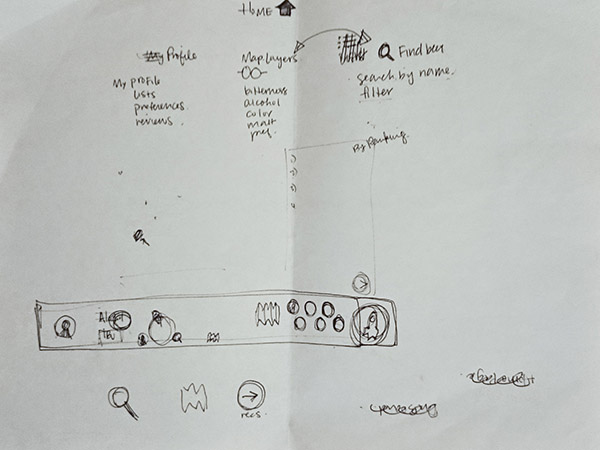 HOME
My Profile
My profile
lists
preferences
reviews
Map Layers
bitterness
alcohol
color
malt
Find beer
search by name
filter
By Ranking
recs.